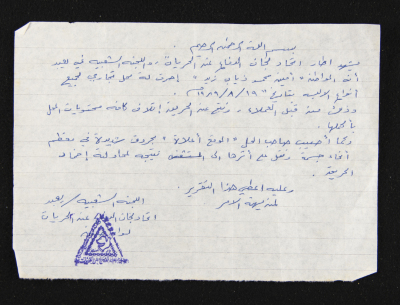 بسم الله الرحمن الرحيم .
يشهد اطار اتحاد لجان الدفاع عن الحريات ، واللجنة الشعبية في يعبد
أنه المواطن " أمين محمد ذياب زيد " احرق له محل تجاري لجميع
أنواع الادب بتاريخ ١٩ / ٨ / ١٩٨٩ م .
وذلك من قبل العملاء ، ونتج عن الحريق إتلاف كافة محتويات المحل
بأكملها .
وكما أصيب صاحب المحل " الموقع أعلاه " بحروق شديدة في معظم
أنحاء جسمه ونقل على أثرها الى المستشفى نتيجة لمحاولة إخماد
الحريق .
وعليه اعطي هذا التقرير .
لمن يهمه الامر
اللجنة الشعبية / يعبد
اتحاد لجان الدفاع عن الحريات